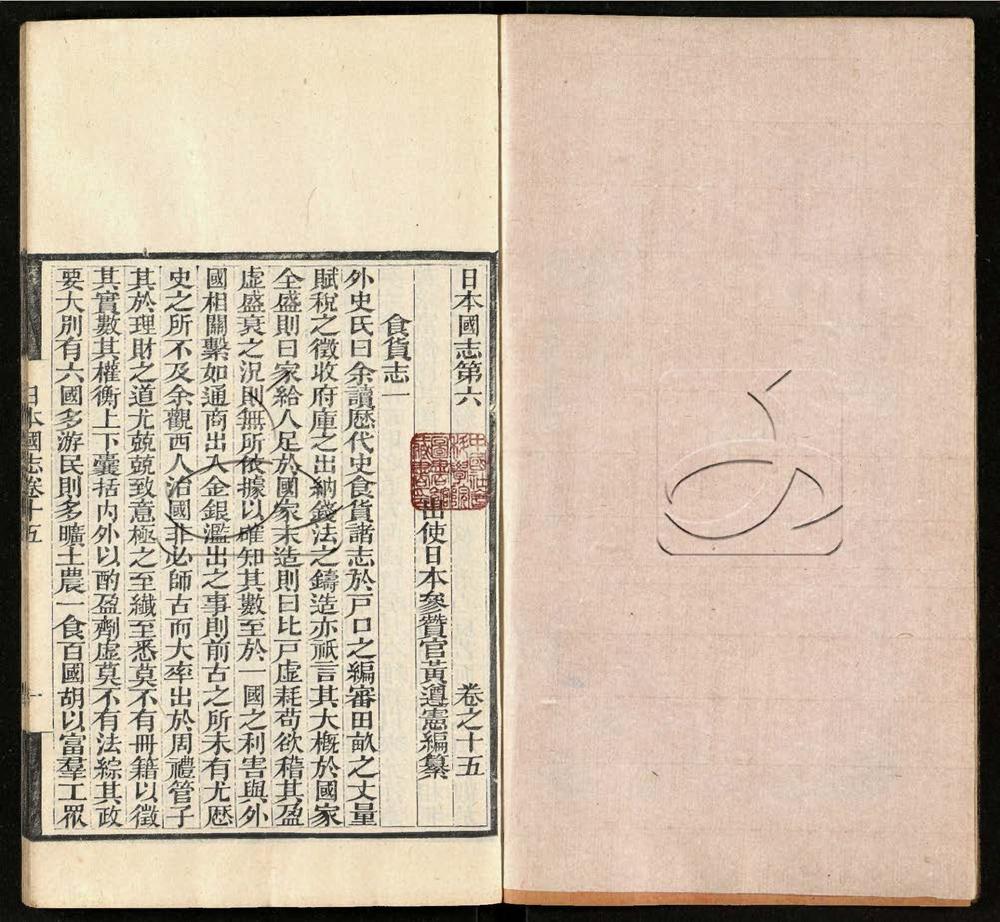 日本國志第六 卷之十五
出使日本參贊官黃遵憲編纂
食貨志一
外史氏曰余讀歷代史食貨諸志於戸口之編審田畝之丈量
賦稅之徵收府庫之出納錢法之鑄造亦祇言其大槪於國家
全盛則曰家給人足於國家末造則曰比戸虛耗苟欲稽其盈
虛盛衰之況則無所依據以確知其數至於一國之利害與外
國相關繫如通商出入金銀濫出之事則前古之所未有尤歷
史之所不及余觀西人治國非必師古而大率出於周禮管子
其於理財之道尤兢兢致意極之至纖至悉莫不有冊籍以徵
其實數其權衡上下囊括內外以酌盈劑虛莫不有法綜其政
要大別有六國多游民則多曠土農一食百國胡以富羣工眾
日本國志卷十五 一